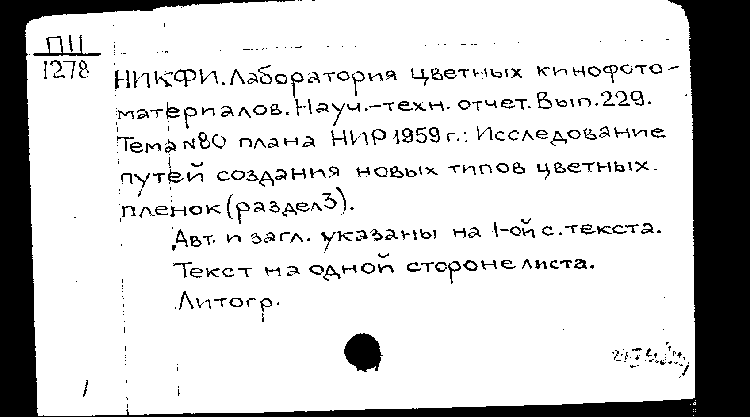 П11
1278
НИКФИ. Лаборатория цветных кинофото-
материалов. Науч.-техн. отчет. Вып. 229.
Тема №80 плана НИР 1959 г.: Исследование
путей создания новых типов цветных
пленок (раздел 3).
Авт. и загл. указаны на 1-ой с. текста.
Текст на одной стороне листа.
Литогр.